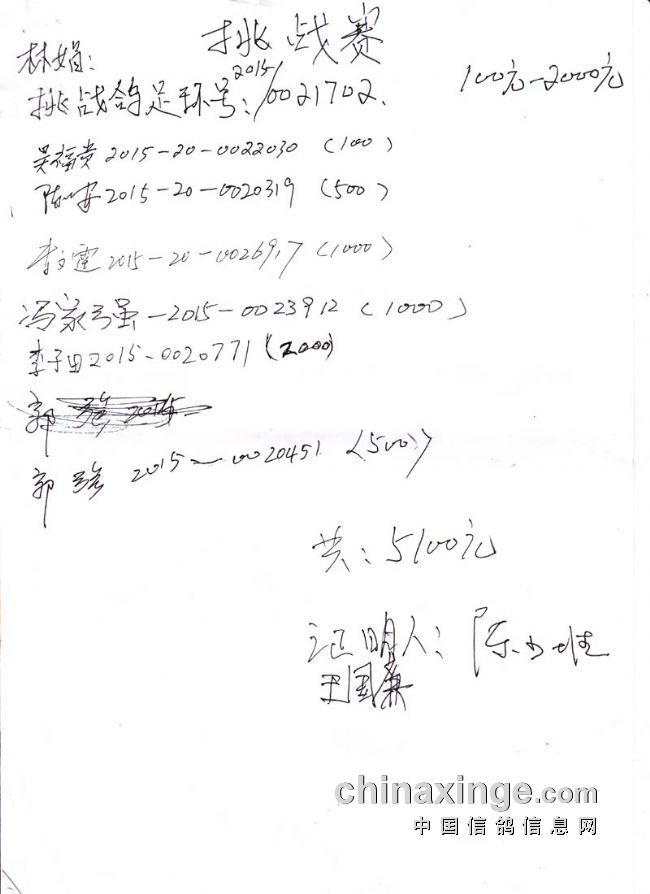 挑战赛
林娟:
挑战鸽足环号:2015/0021702.
100元-2000元
吴福贵2015-20-0022030 (100)
陈 安2015-20-0020319 (500)
李文 2015-20-0026917 (1000)
冯家强-2015-0023912 (1000)
李子田2015-0020771 (2000)
郭 2015
郭 2015-0020451 (500)
共:5100元
证明人:陈少雄
王国兼
chinaxinge.com
中国信鸽信息网